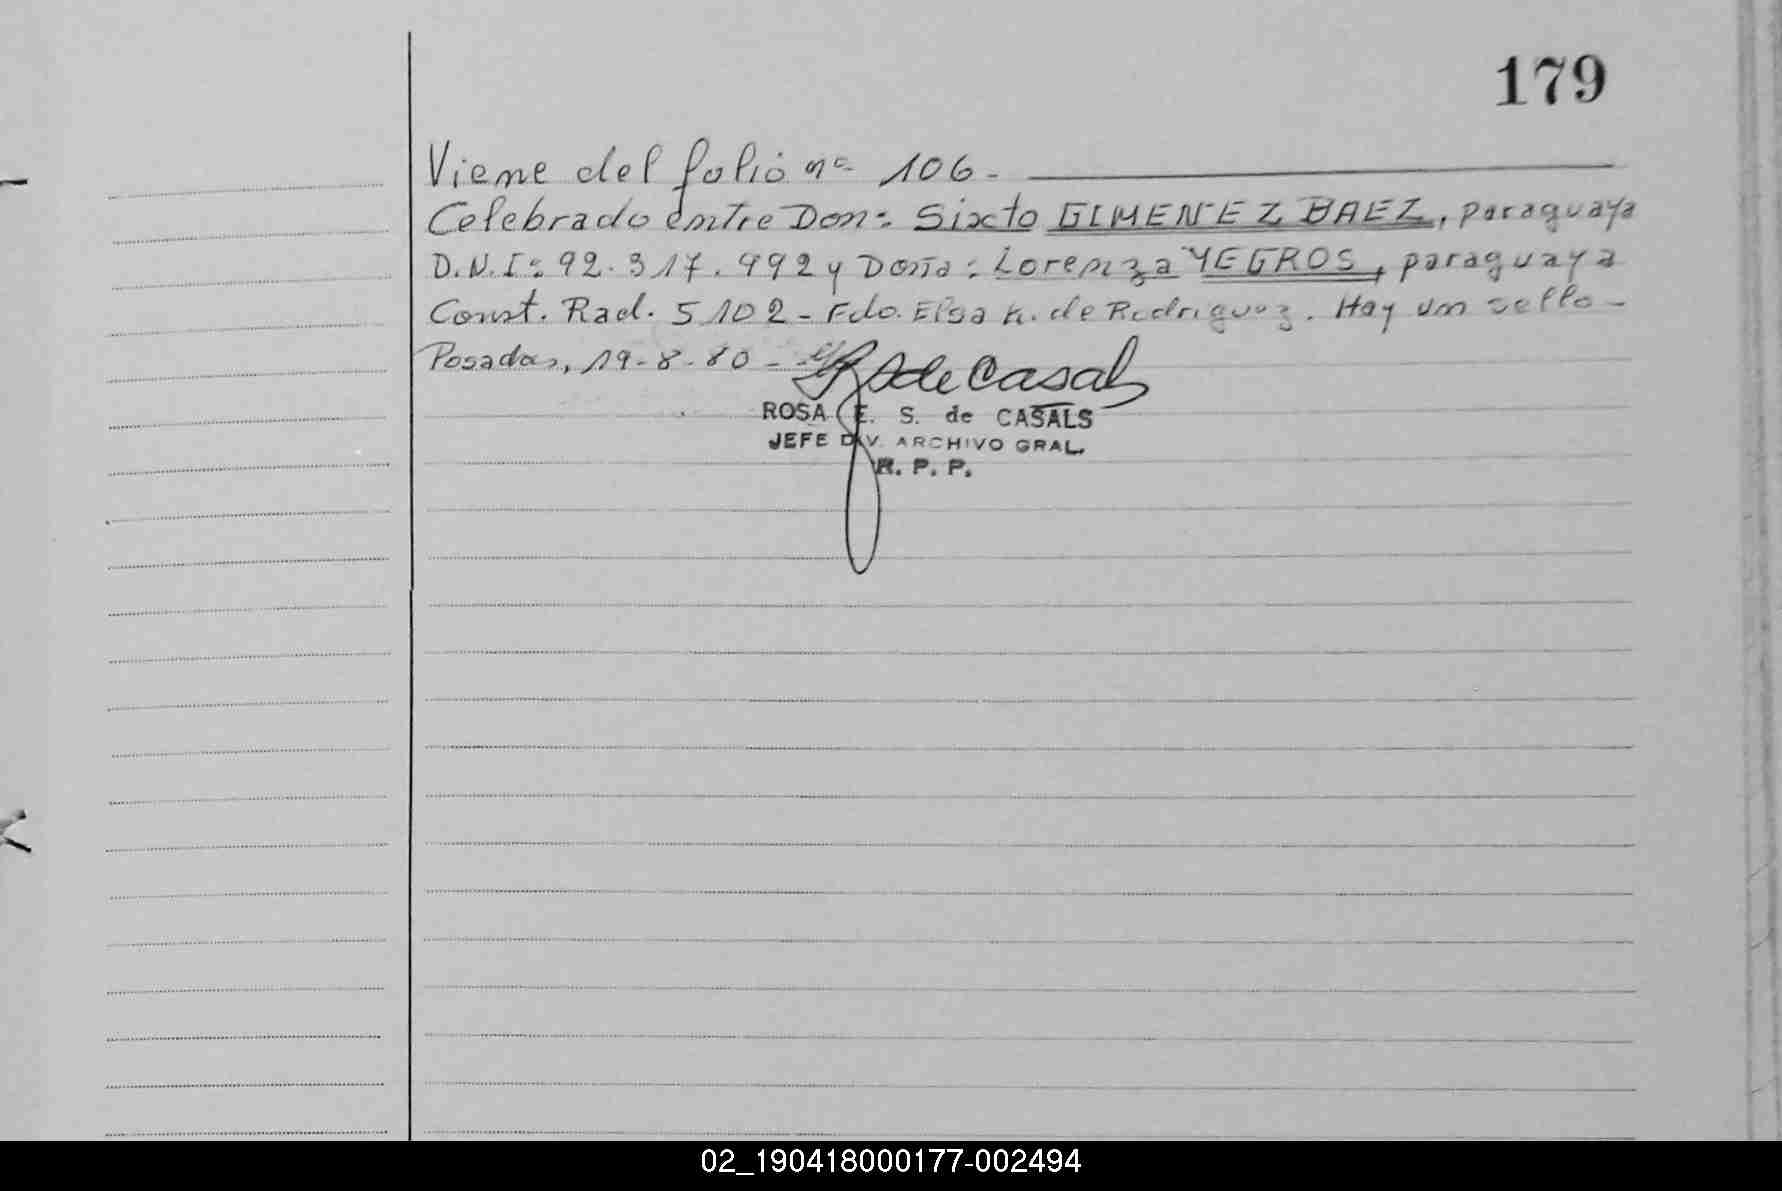 179
Viene del folio nº 106.-
Celebrado entre Don: Sixto GIMENEZ BAEZ, paraguaya
D.N.I: 92.317.992 y Doña: Lorenza YEGROS, paraguaya
Const. Rad. 5102 - Fdo. Elsa K. de Rodriguez. Hay un sello -
Posadas, 19-8-80 -
R S de Casals
ROSA E. S. de CASALS
JEFE DIV. ARCHIVO GRAL.
R. P. P.
02_190418000177-002494